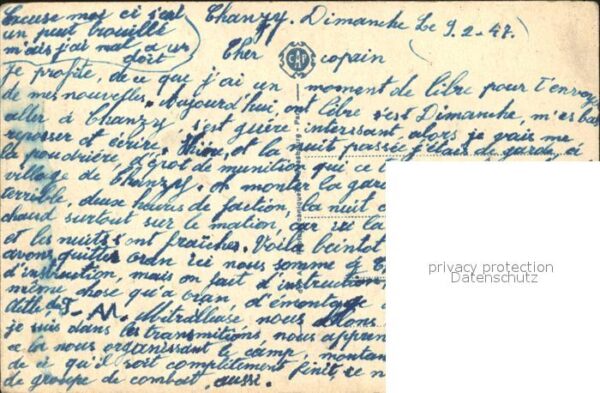 Excuse moi ci s'est
un peut brouillé
mais j'ai mal a un
doit
Chanzy. Dimanche Le 9-2-47.
Cher copain
CAP
Je profite, de ce que j'ai un moment de libre pour t'envoye
de mes nouvelles. Aujourd'hui, ont libre s'est Dimanche, m'es bas
aller à Chanzy s'est guère interssant, alors je vais me
reposser et écrire. Hière, et la nuit passée j'étais de garde, a
la poudrière, dépot de munition qui ce
village de Chanzy. On monter la gar
terrible, deux heures de faction, la nuit
chaud surtout sur le mation, car ici la
et les nuits ont fraîches. Voila beintot
avons quitter oran ici nous somme à
d'instruction, mais on fait d'instruction
même chose qu'a oran, d'émontage
de F-M. Mitralleuse nous allons
je suis dans les transmitions, nous appren
nous organissant le camp, montan
de ci qu'il soit complètement finit, ce n
de groupe de combat, aussi.
privacy protection
Datenschutz